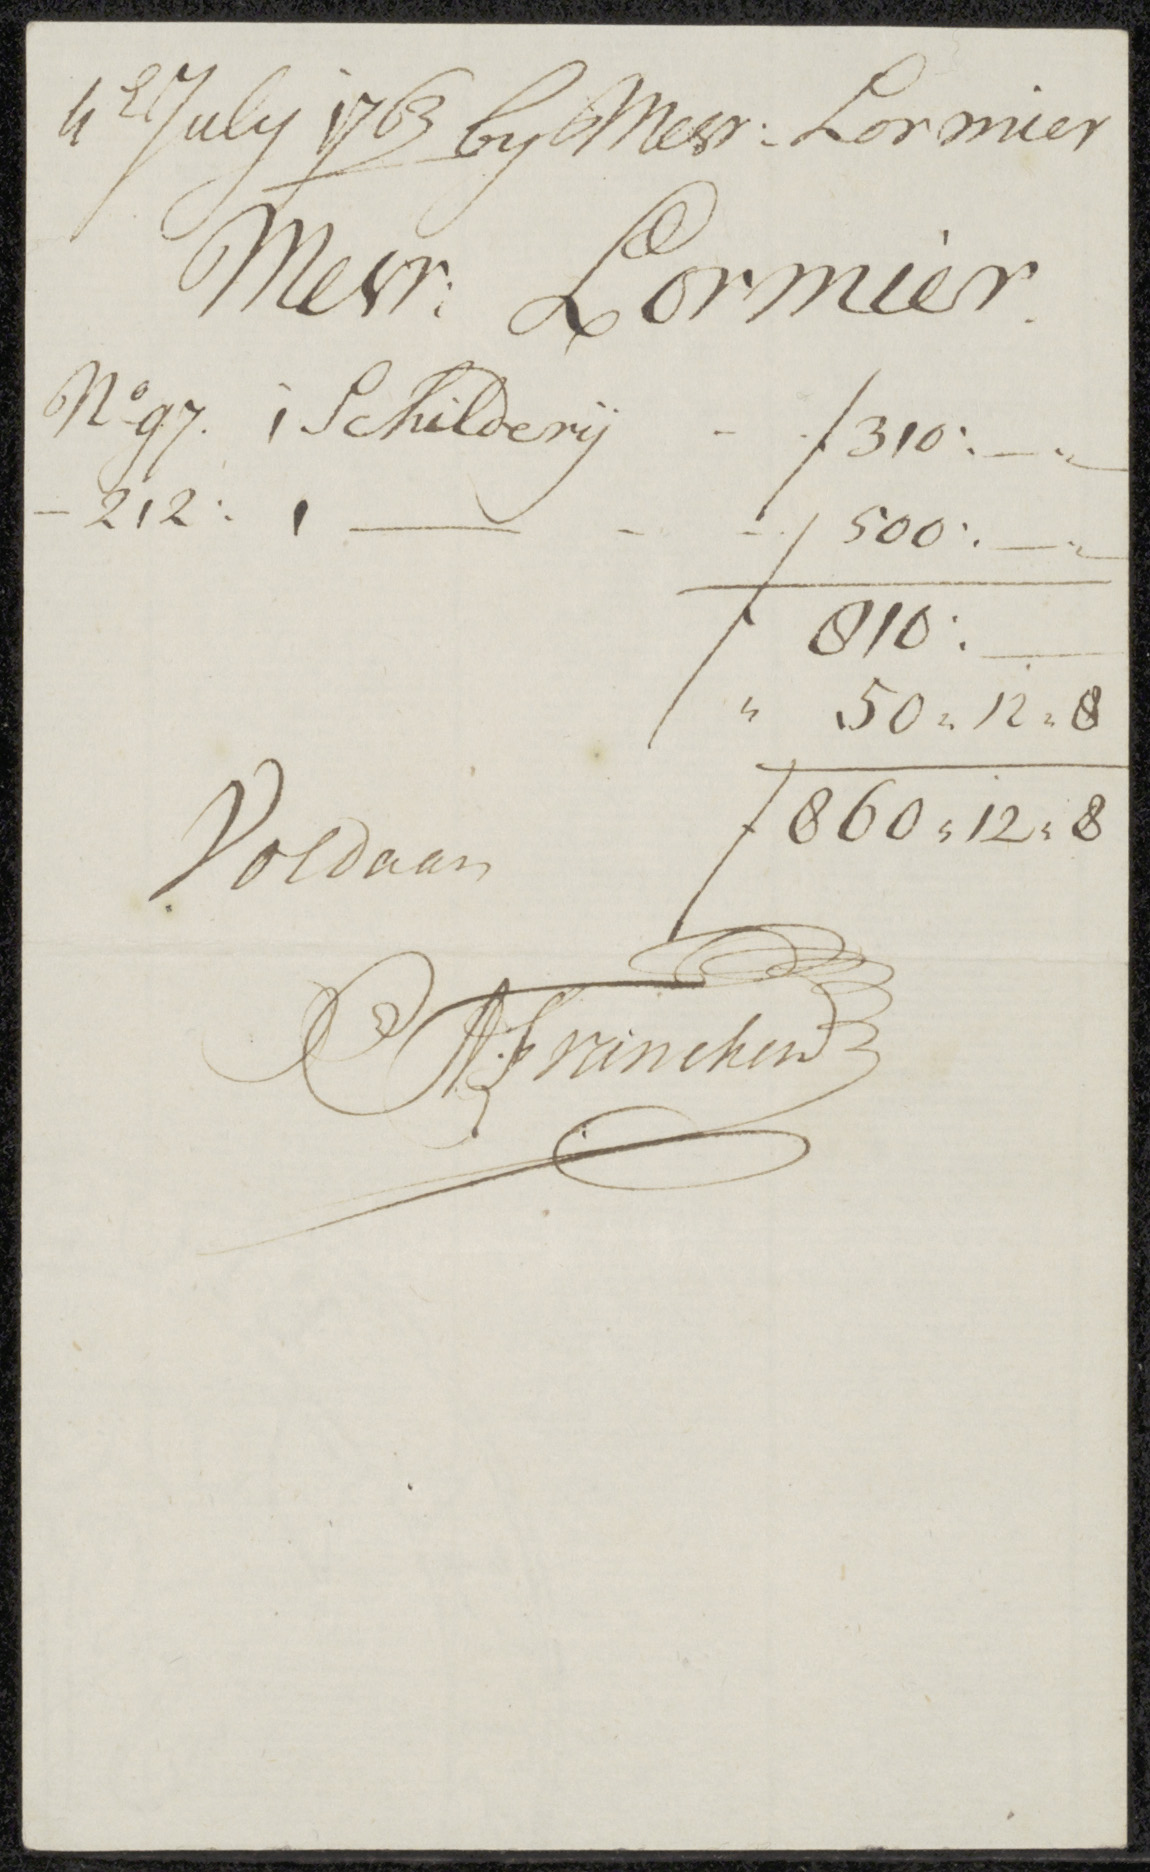 4e July 1763 by Mevr: Lormier
Mevr: Lormier.
No 97. 1 Schilderij - - ƒ 310:. — "
- 212:. 1 — - - ƒ 500:. — "
ƒ 810:. —
" 50 " 12 " 8
ƒ 860 " 12 " 8
Voldaan
A. Francken